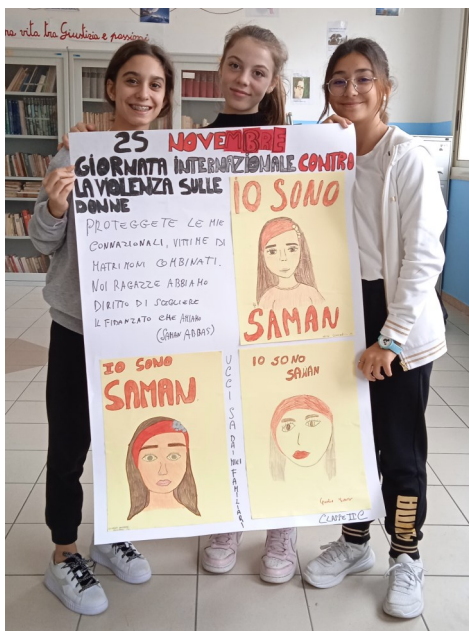 una vita tra Giustizia e passione
25 NOVEMBRE
GIORNATA INTERNAZIONALE CONTRO
LA VIOLENZA SULLE
DONNE
PROTEGGETE LE MIE
CONNAZIONALI, VITTIME DI
MATRIMONI COMBINATI.
NOI RAGAZZE ABBIAMO
DIRITTO DI SCEGLIERE
IL FIDANZATO CHE AMIAMO
(SAMAN ABBAS)
IO SONO
SAMAN
IO SONO
SAMAN
UCCISA DAI MIEI FAMILIARI
IO SONO
SAMAN
CLASSE II C